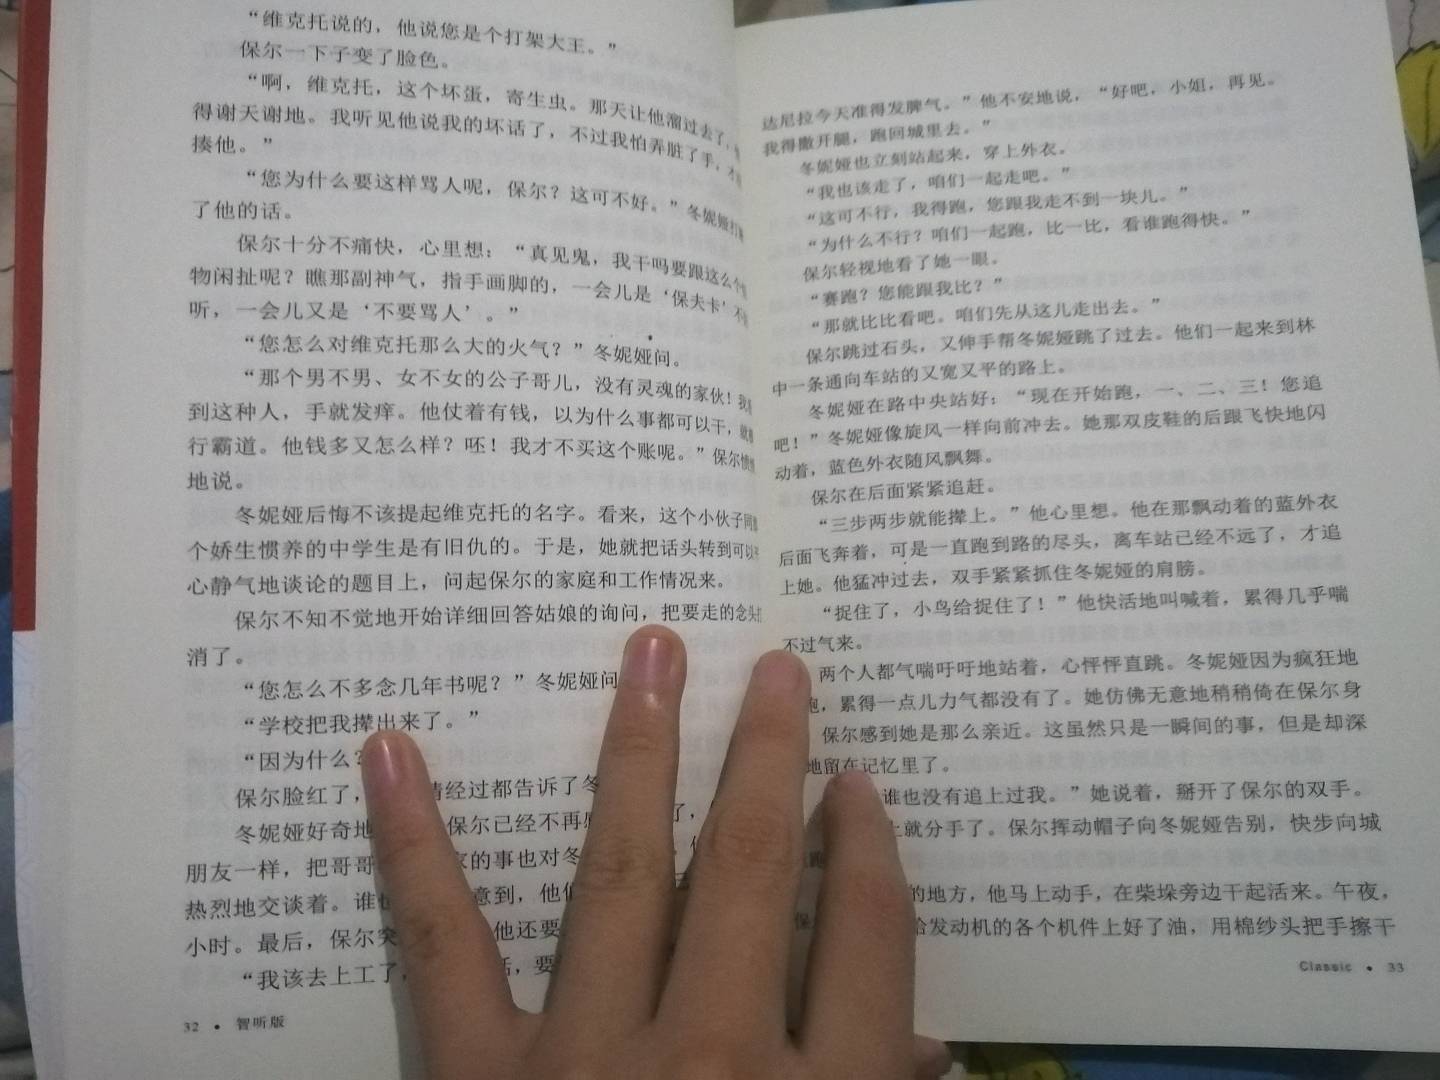 “维克托说的，他说您是个打架大王。”
保尔一下子变了脸色。
“啊，维克托，这个坏蛋，寄生虫。那天让他溜过去了，
得谢天谢地。我听见他说我的坏话了，不过我怕弄脏了手，才
揍他。”
“您为什么要这样骂人呢，保尔？这可不好。”冬妮娅打
了他的话。
保尔十分不痛快，心里想：“真见鬼，我干吗要跟这么个
物闲扯呢？瞧那副神气，指手画脚的，一会儿是‘保夫卡’不
听，一会儿又是‘不要骂人’。”
“您怎么对维克托那么大的火气？”冬妮娅问。
“那个男不男、女不女的公子哥儿，没有灵魂的家伙！我
到这种人，手就发痒。他仗着有钱，以为什么事都可以干，就
行霸道。他钱多又怎么样？呸！我才不买这个账呢。”保尔愤
地说。
冬妮娅后悔不该提起维克托的名字。看来，这个小伙子同
个娇生惯养的中学生是有旧仇的。于是，她就把话头转到可以
心静气地谈论的题目上，问起保尔的家庭和工作情况来。
保尔不知不觉地开始详细回答姑娘的询问，把要走的念头
消了。
“您怎么不多念几年书呢？”冬妮娅问
“学校把我撵出来了。”
“因为什么？
保尔脸红了，情经过都告诉了冬
冬妮娅好奇地 保尔已经不再 了，
朋友一样，把哥哥 的事也对冬
热烈地交谈着。谁也 意到，他们
小时。最后，保尔突 他还要
“我该去上工了， 话，要
32 • 智听版
达尼拉今天准得发脾气。”他不安地说，“好吧，小姐，再见。
我得撒开腿，跑回城里去。”
冬妮娅也立刻站起来，穿上外衣。
“我也该走了，咱们一起走吧。”
“这可不行，我得跑，您跟我走不到一块儿。”
“为什么不行？咱们一起跑，比一比，看谁跑得快。”
保尔轻视地看了她一眼。
“赛跑？您能跟我比？”
“那就比比看吧。咱们先从这儿走出去。”
保尔跳过石头，又伸手帮冬妮娅跳了过去。他们一起来到林
中一条通向车站的又宽又平的路上。
冬妮娅在路中央站好：“现在开始跑，一、二、三！您追
吧！”冬妮娅像旋风一样向前冲去。她那双皮鞋的后跟飞快地闪
动着，蓝色外衣随风飘舞。
保尔在后面紧紧追赶。
“三步两步就能撵上。”他心里想。他在那飘动着的蓝外衣
后面飞奔着，可是一直跑到路的尽头，离车站已经不远了，才追
上她。他猛冲过去，双手紧紧抓住冬妮娅的肩膀。
“捉住了，小鸟给捉住了！”他快活地叫喊着，累得几乎喘
不过气来。
两个人都气喘吁吁地站着，心怦怦直跳。冬妮娅因为疯狂地
跑，累得一点儿力气都没有了。她仿佛无意地稍稍倚在保尔身
保尔感到她是那么亲近。这虽然只是一瞬间的事，但是却深
地留在记忆里了。
谁也没有追上过我。”她说着，掰开了保尔的双手。
上就分手了。保尔挥动帽子向冬妮娅告别，快步向城
跑
的地方，他马上动手，在柴垛旁边干起活来。午夜，
保 给发动机的各个机件上好了油，用棉纱头把手擦干
Classic • 33